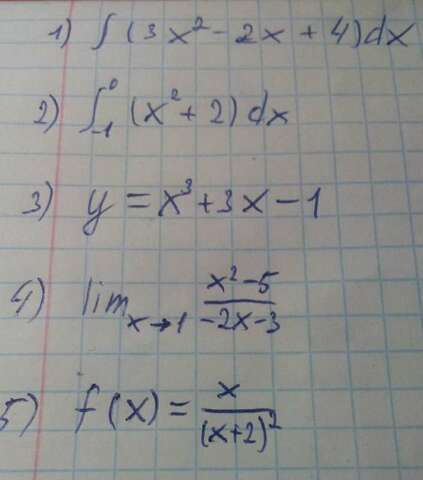 1) ∫ (3x² - 2x + 4) dx
2) ∫₋₁⁰ (x² + 2) dx
3) y = x³ + 3x - 1
4) lim x→1 (x² - 5)/(-2x - 3)
5) f(x) = x/(x+2)²